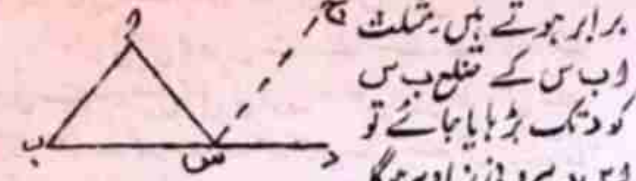 برابر ہوتے ہیں۔ مثلث
اب س کے ضلع ب س
کو د تک بڑہایا جائے تو
ا
ج
ب
س
د